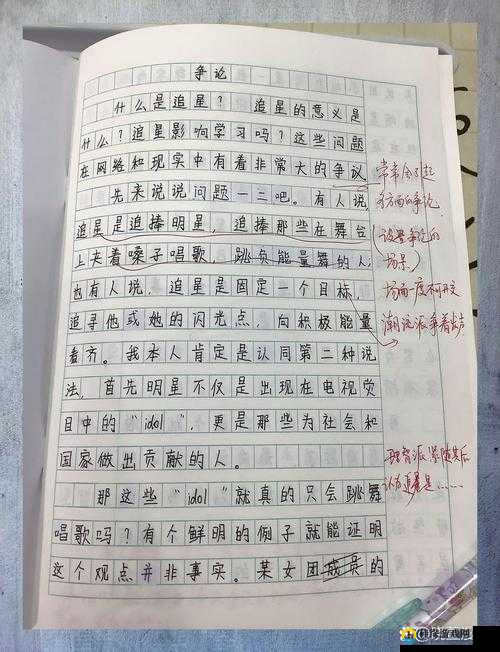 争论
什么是追星？ 追星的意义是
什么？追星影响学习吗？这些问题
在网络和现实中有着非常大的争议
先来说说问题一二吧。有人说，
追星是追捧明星，追捧那些在舞台
上夹着嗓子唱歌，跳负能量舞的人；
也有人说，追星是固定一个目标，
追寻他或她的闪光点，向积极能量
看齐。我本人肯定是认同第二种说
法，首先明星不仅是出现在电视荧
目中的“idol”，更是那些为社会和
国家做出贡献的人。
那这些“idol”就真的只会跳舞
唱歌吗？有个鲜明的例子就能证明
这个观点并非事实。某女团成员的
常常会引起
多方面的争论
（设置争论的
场景）
场面一度不可开交
潮流派争着发声
理智派紧随其后
认为更重要是……